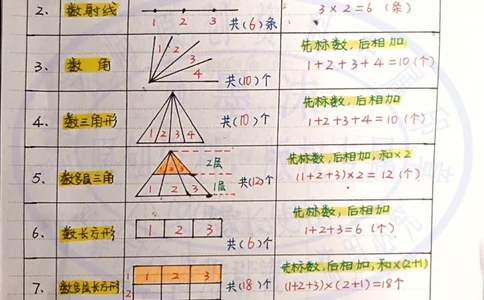 2. 数射线 1 2 3 共(6)条 3×2=6 (条)
3. 数 角 1 2 3 4 共(10)个 先标数,后相加
1+2+3+4=10(个)
4. 数三角形 1 2 3 4 共(10)个 先标数,后相加
1+2+3+4=10(个)
5. 数多层三角 1 2 3 1 2 3 2层 1层 共(12)个 先标数,后相加,和×2
(1+2+3)×2=12(个)
6. 数长方形 1 2 3 共(6)个 先标数,后相加
1+2+3=6 (个)
7. 数多层长方形 1 2 3 1 2 共(18)个 先标数,后相加,和×(2+1)
(1+2+3)×(2+1)=18个